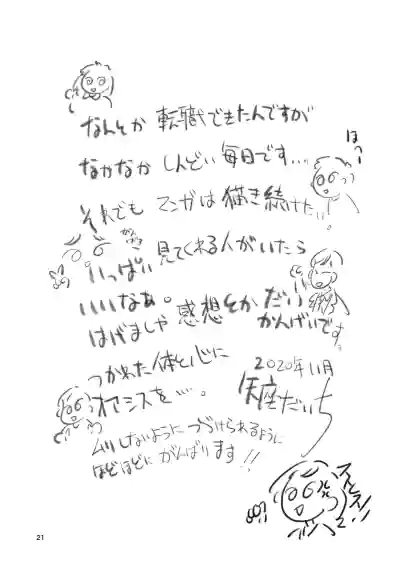 なんとか 転職できたんですが
なかなか しんどい 毎日です…
ほっ
それでも マンガは 描き続けたい
いっぱい 見てくれる人がいたら
いいなぁ。
はげましや 感想とか だい
かんげいです。
つかれた 体と心に
オアシスを…。
2020年11月
座だいち
ムリしないように つづけられるように
ほどほどに がんばります!!
21